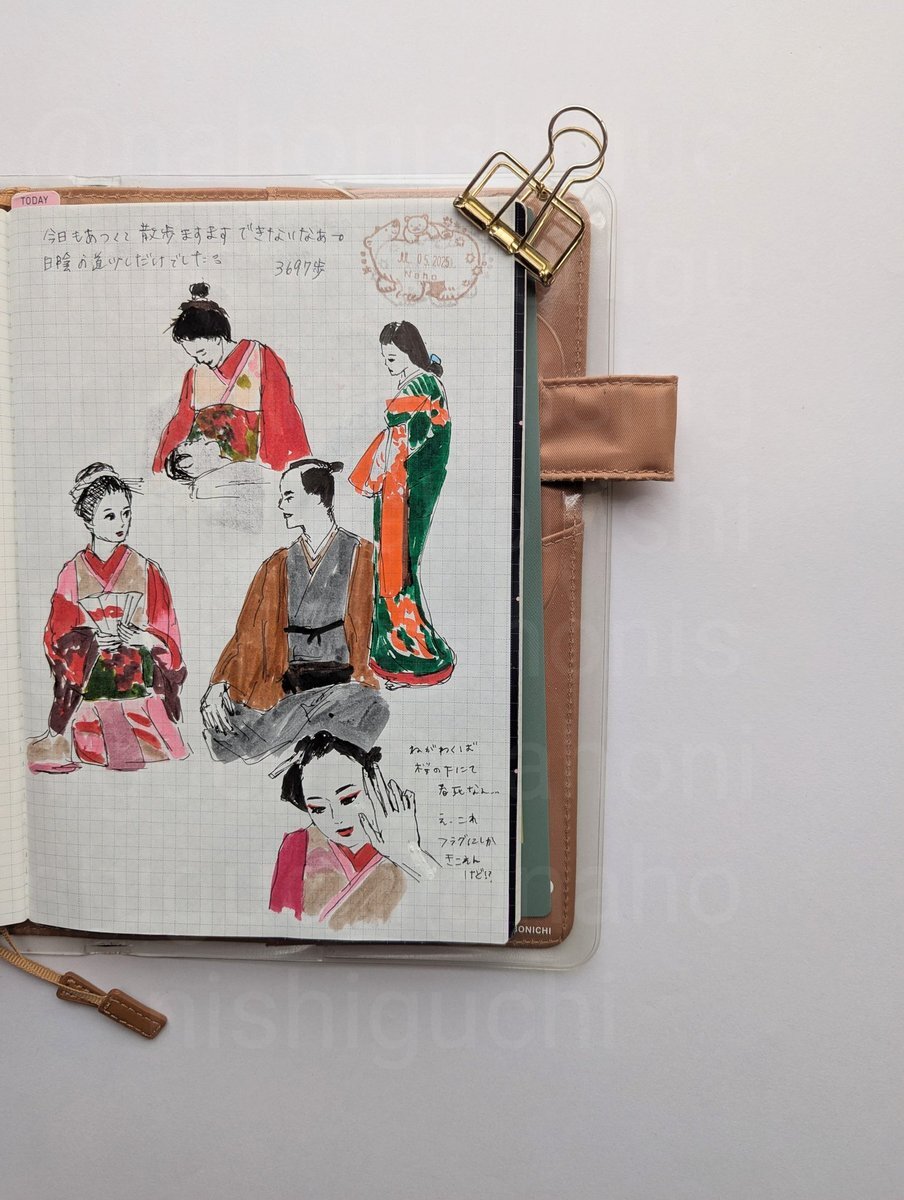 TODAY
今日もあつくて 散歩ますます できないなあー。
日陰の道
3697歩
JUL 05.2025
Nano
ねがわくば
桜の下にて
春死なん...
え、これ
フラグにしか
きこえん
けど!?
ONICHI
nishiguchi